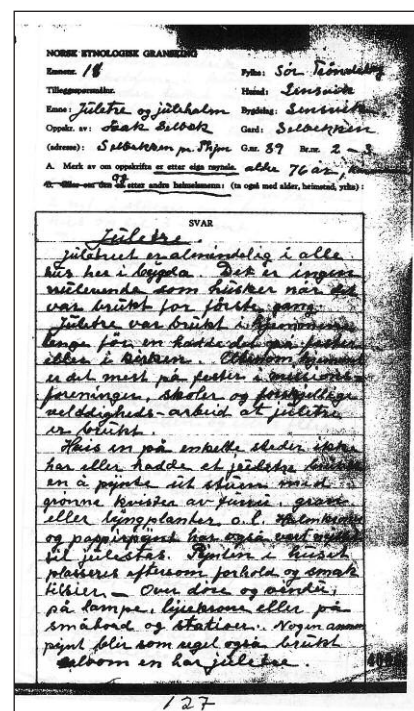 NORSK ETNOLOGISK GRANSKING
Emnenr. 18 Fylke: Sør Trøndelag
Tilleggsspørsmål nr. Herad: Lensvik
Emne: Juletre og julehalm Bygdelag: Lensvik
Oppskr. av: Isak Selbek Gard: Selbekken
(adresse): Selbekken pr. Thjem G.nr. 89 Br.nr. 2-3
A. Merk av om oppskrifta er etter eiga røynsle. alder 76 år,
B. Eller om den er etter andre heimelsmenn: (ta også med alder, heimstad, yrke):
SVAR
Juletre.
juletreet er almindelig i alle
hus her i bygda. Det er ingen
nulevende som husker når det
var brukt for første gang.
Juletre var brukt i hjemmene
lenge før en hadde det på fester
eller i kirken. Utenom hjemmet
er det mest på fester i missions-
foreninger, skoler og forskjellige
veldedigheds-arbeid at juletre
er brukt.
Hvis en på enkelte steder ikke
har eller hadde et juletre brukte
en å pynte ut stuen med
grønne kvister av furru, gran
eller lyngplanter o.l. Halmkroner
og papirpynt har også vært nyttet
til julestas. Pynten i huset
plasseres eftersom forhold og smak
tilsier. — Over døre og vindu,
på lampe, lysekrone eller på
småbord og stativer. Nogen annen
pynt blir som regel også brukt
selvom en har juletre.
127